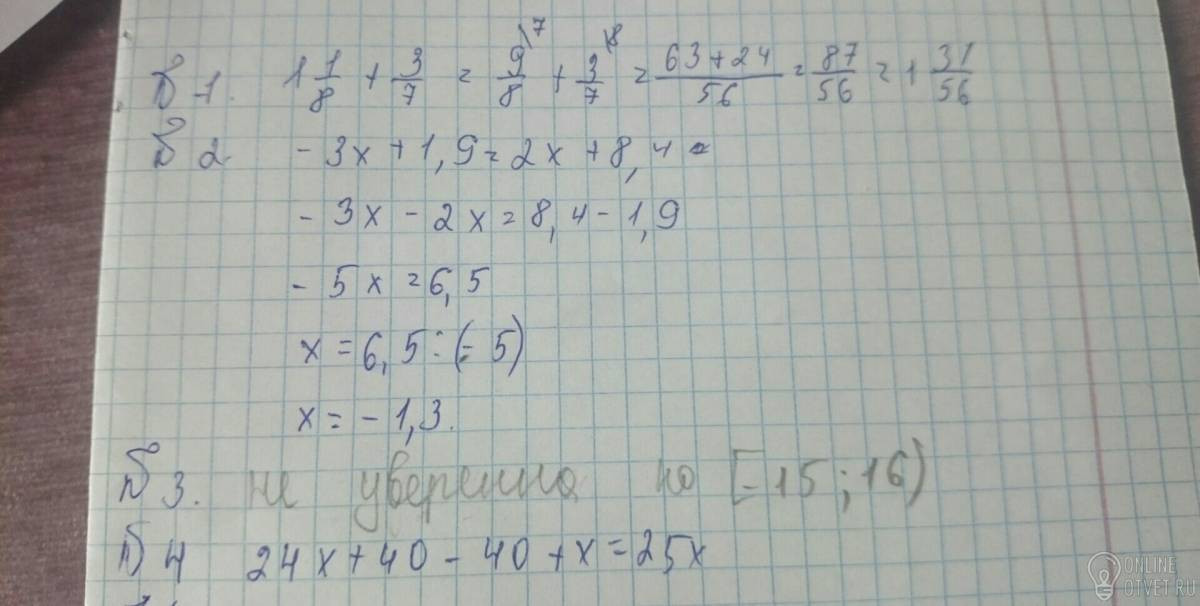 Б 1. 1 1/8 + 3/7 = 9/8 \7 + 3/7 \8 = 63+24/56 = 87/56 = 1 31/56
Б 2. - 3x + 1,9 = 2x + 8,4
- 3x - 2x = 8,4 - 1,9
- 5x = 6,5
x = 6,5 : (- 5)
x = - 1,3.
Б 3. не уверенна но [-15; 16)
Б 4 24x + 40 - 40 + x = 25x
ONLINE
OTVET.RU